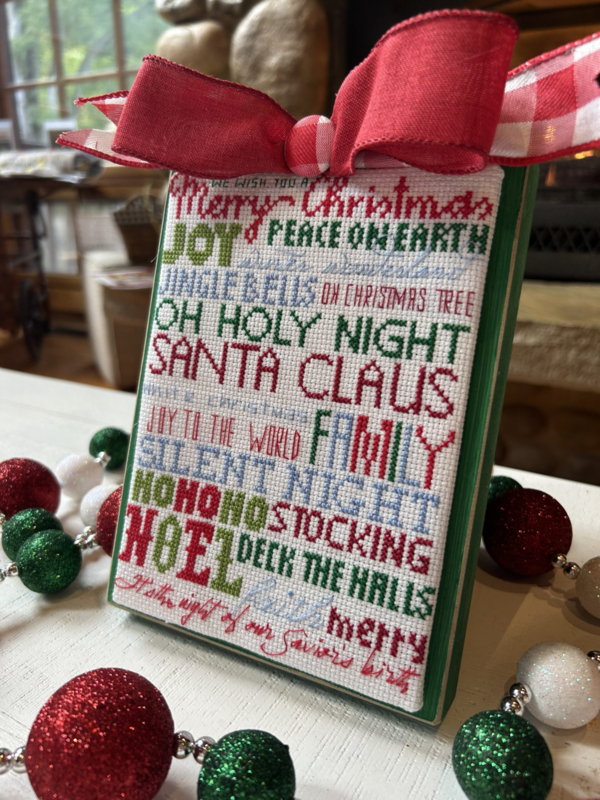 WE WISH YOU A
Merry Christmas
JOY PEACE ON EARTH
winter wonderland
JINGLE BELLS OH CHRISTMAS TREE
OH HOLY NIGHT
SANTA CLAUS
WHITE CHRISTMAS
JOY TO THE WORLD FAMILY
SILENT NIGHT
HO HO HO STOCKING
NOEL DECK THE HALLS
faith merry
It is the night of our Saviors birth